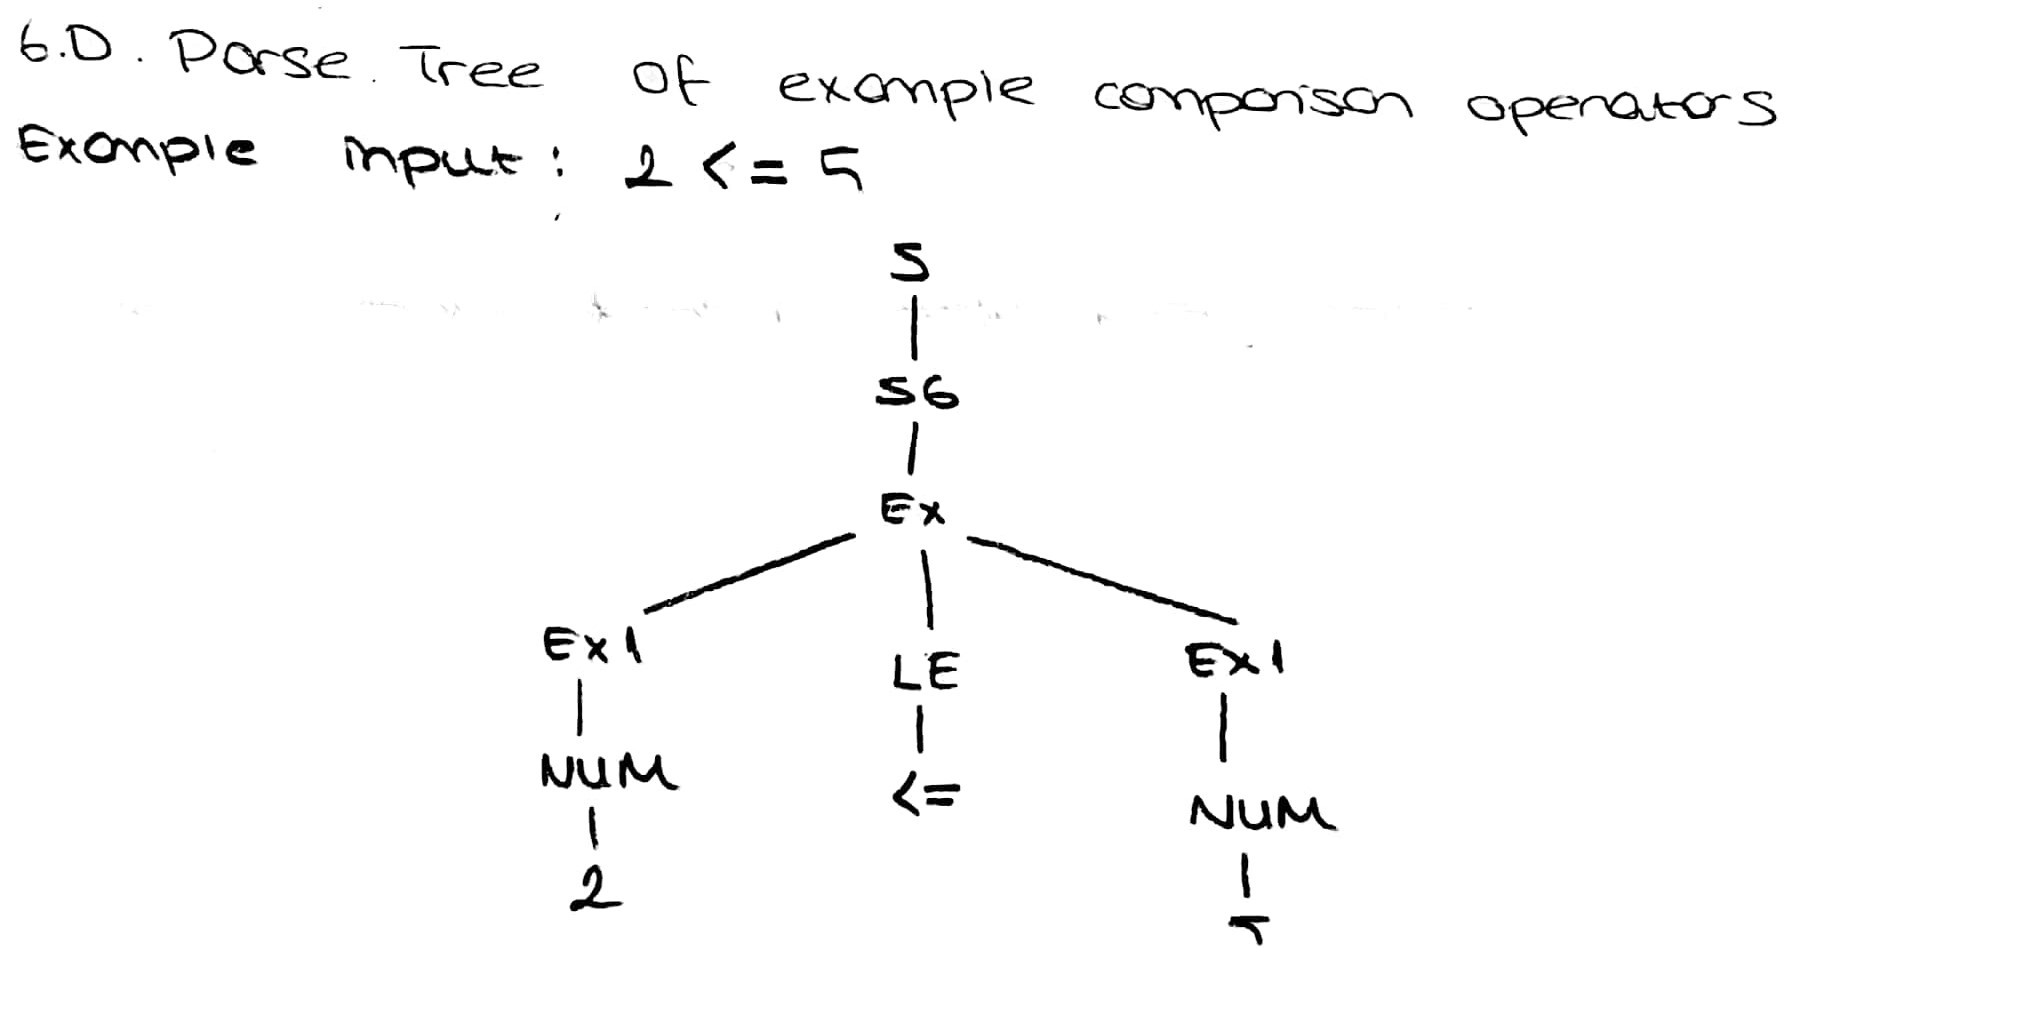 6.D. Parse Tree of example comparison operators
Example input: 2 <= 5
S
S6
Ex
Ex1 LE Ex1
NUM <= NUM
2 5